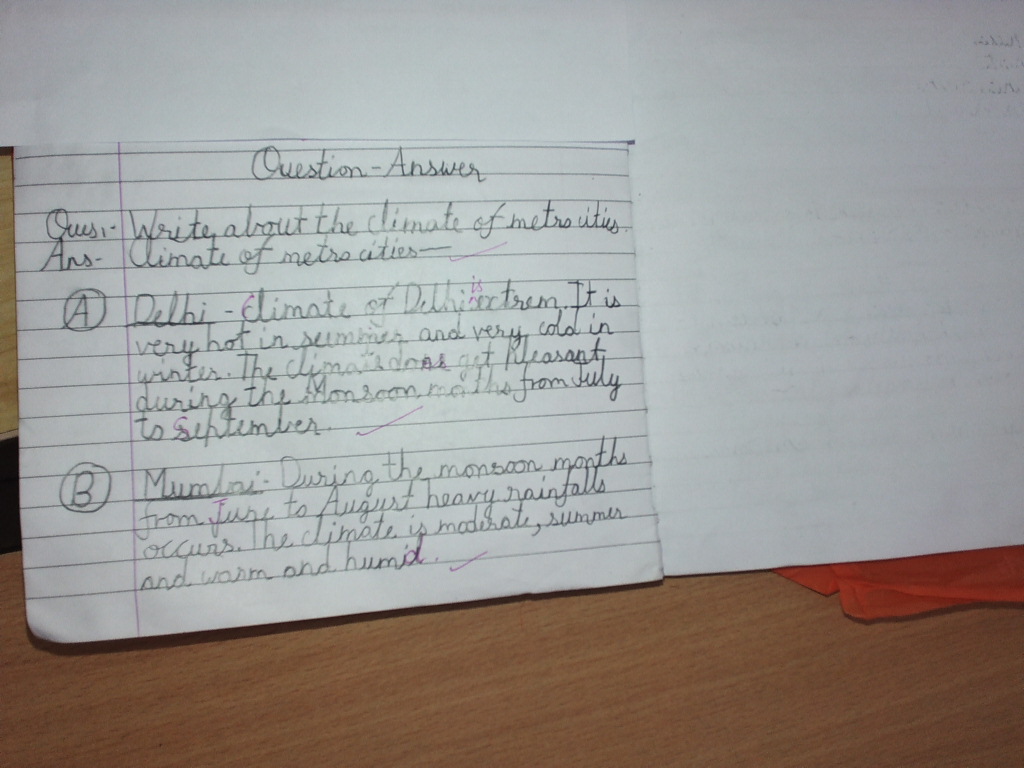 Question-Answer
Ques1:- Write about the climate of metro cities.
Ans- Climate of metro cities—
A Delhi - Climate of Delhi is extrem. It is
very hot in summer and very cold in
winter. The climate does get pleasant,
during the Monsoon months from July
to September.
B Mumbai:- During the monsoon months
from June to August heavy rainfalls
occurs. The climate is moderate, summer
and warm and humid.